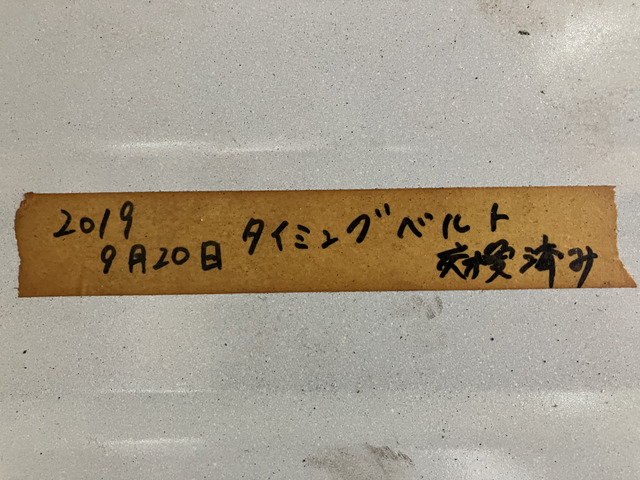 2019
9月20日
タイミングベルト
交換済み